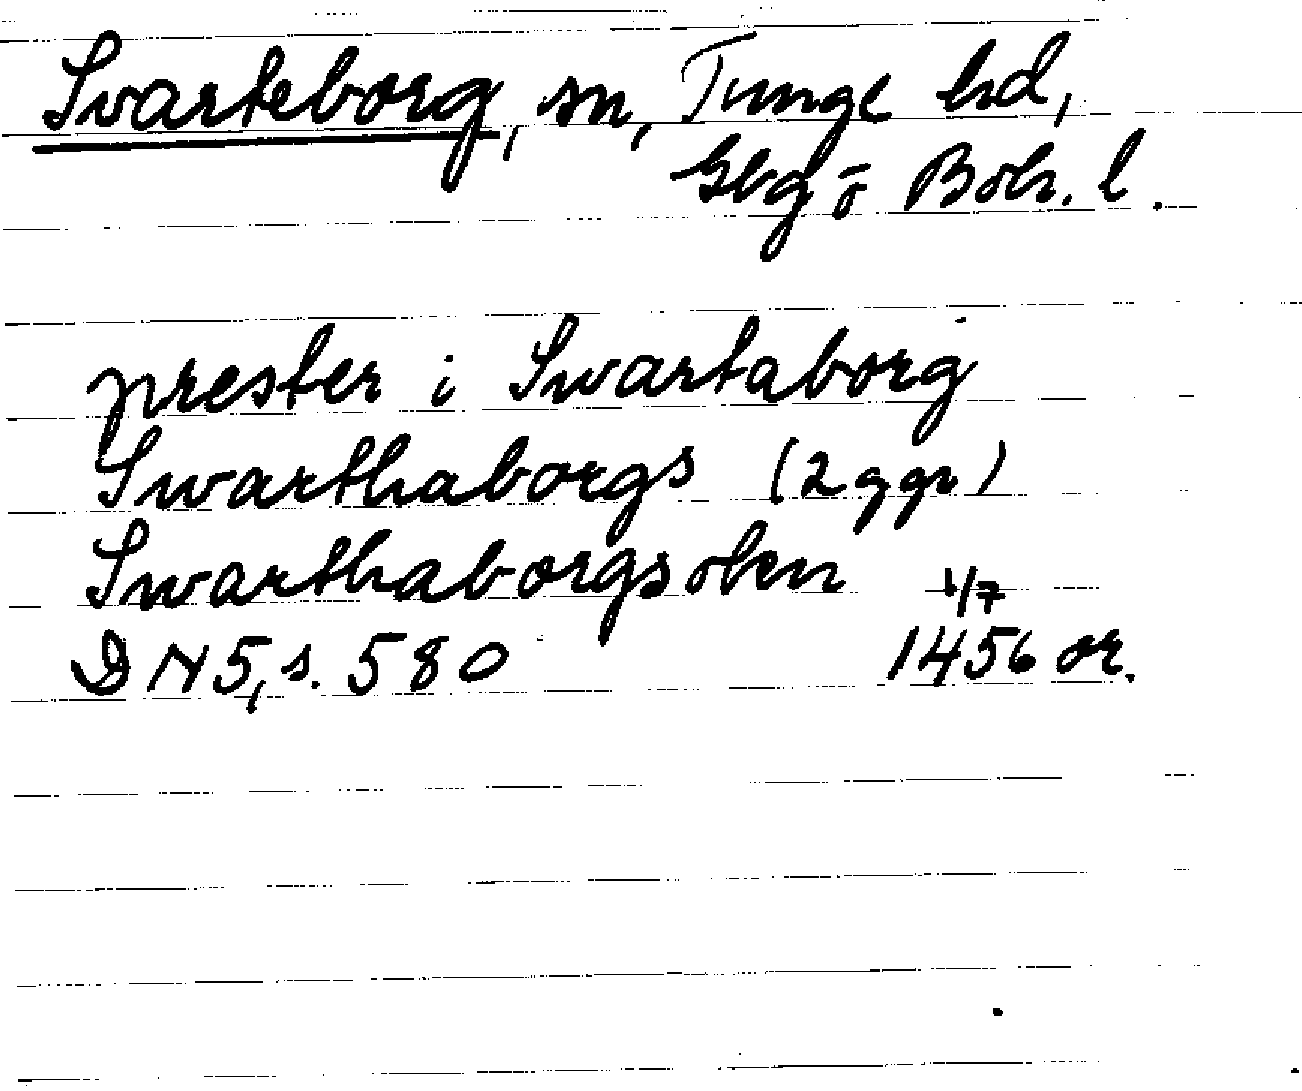 Svarteborg, sn, Tunge hd,
Gbg ō Boh. l.
prester i Swartaborg
Swarthaborgs (2 ggr)
Swarthaborgsokn
DN 5, s. 580 1/7 1456 or.